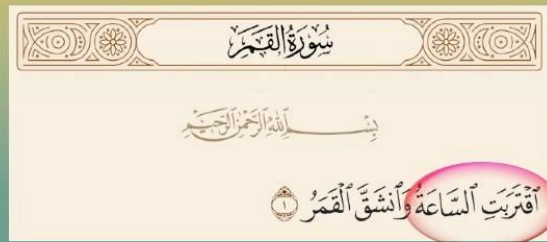 سُورَةُ القَمَرِ
بِسْمِ ٱللَّهِ ٱلرَّحْمَٰنِ ٱلرَّحِيمِ
ٱقْتَرَبَتِ ٱلسَّاعَةُ وَٱنشَقَّ ٱلْقَمَرُ ١